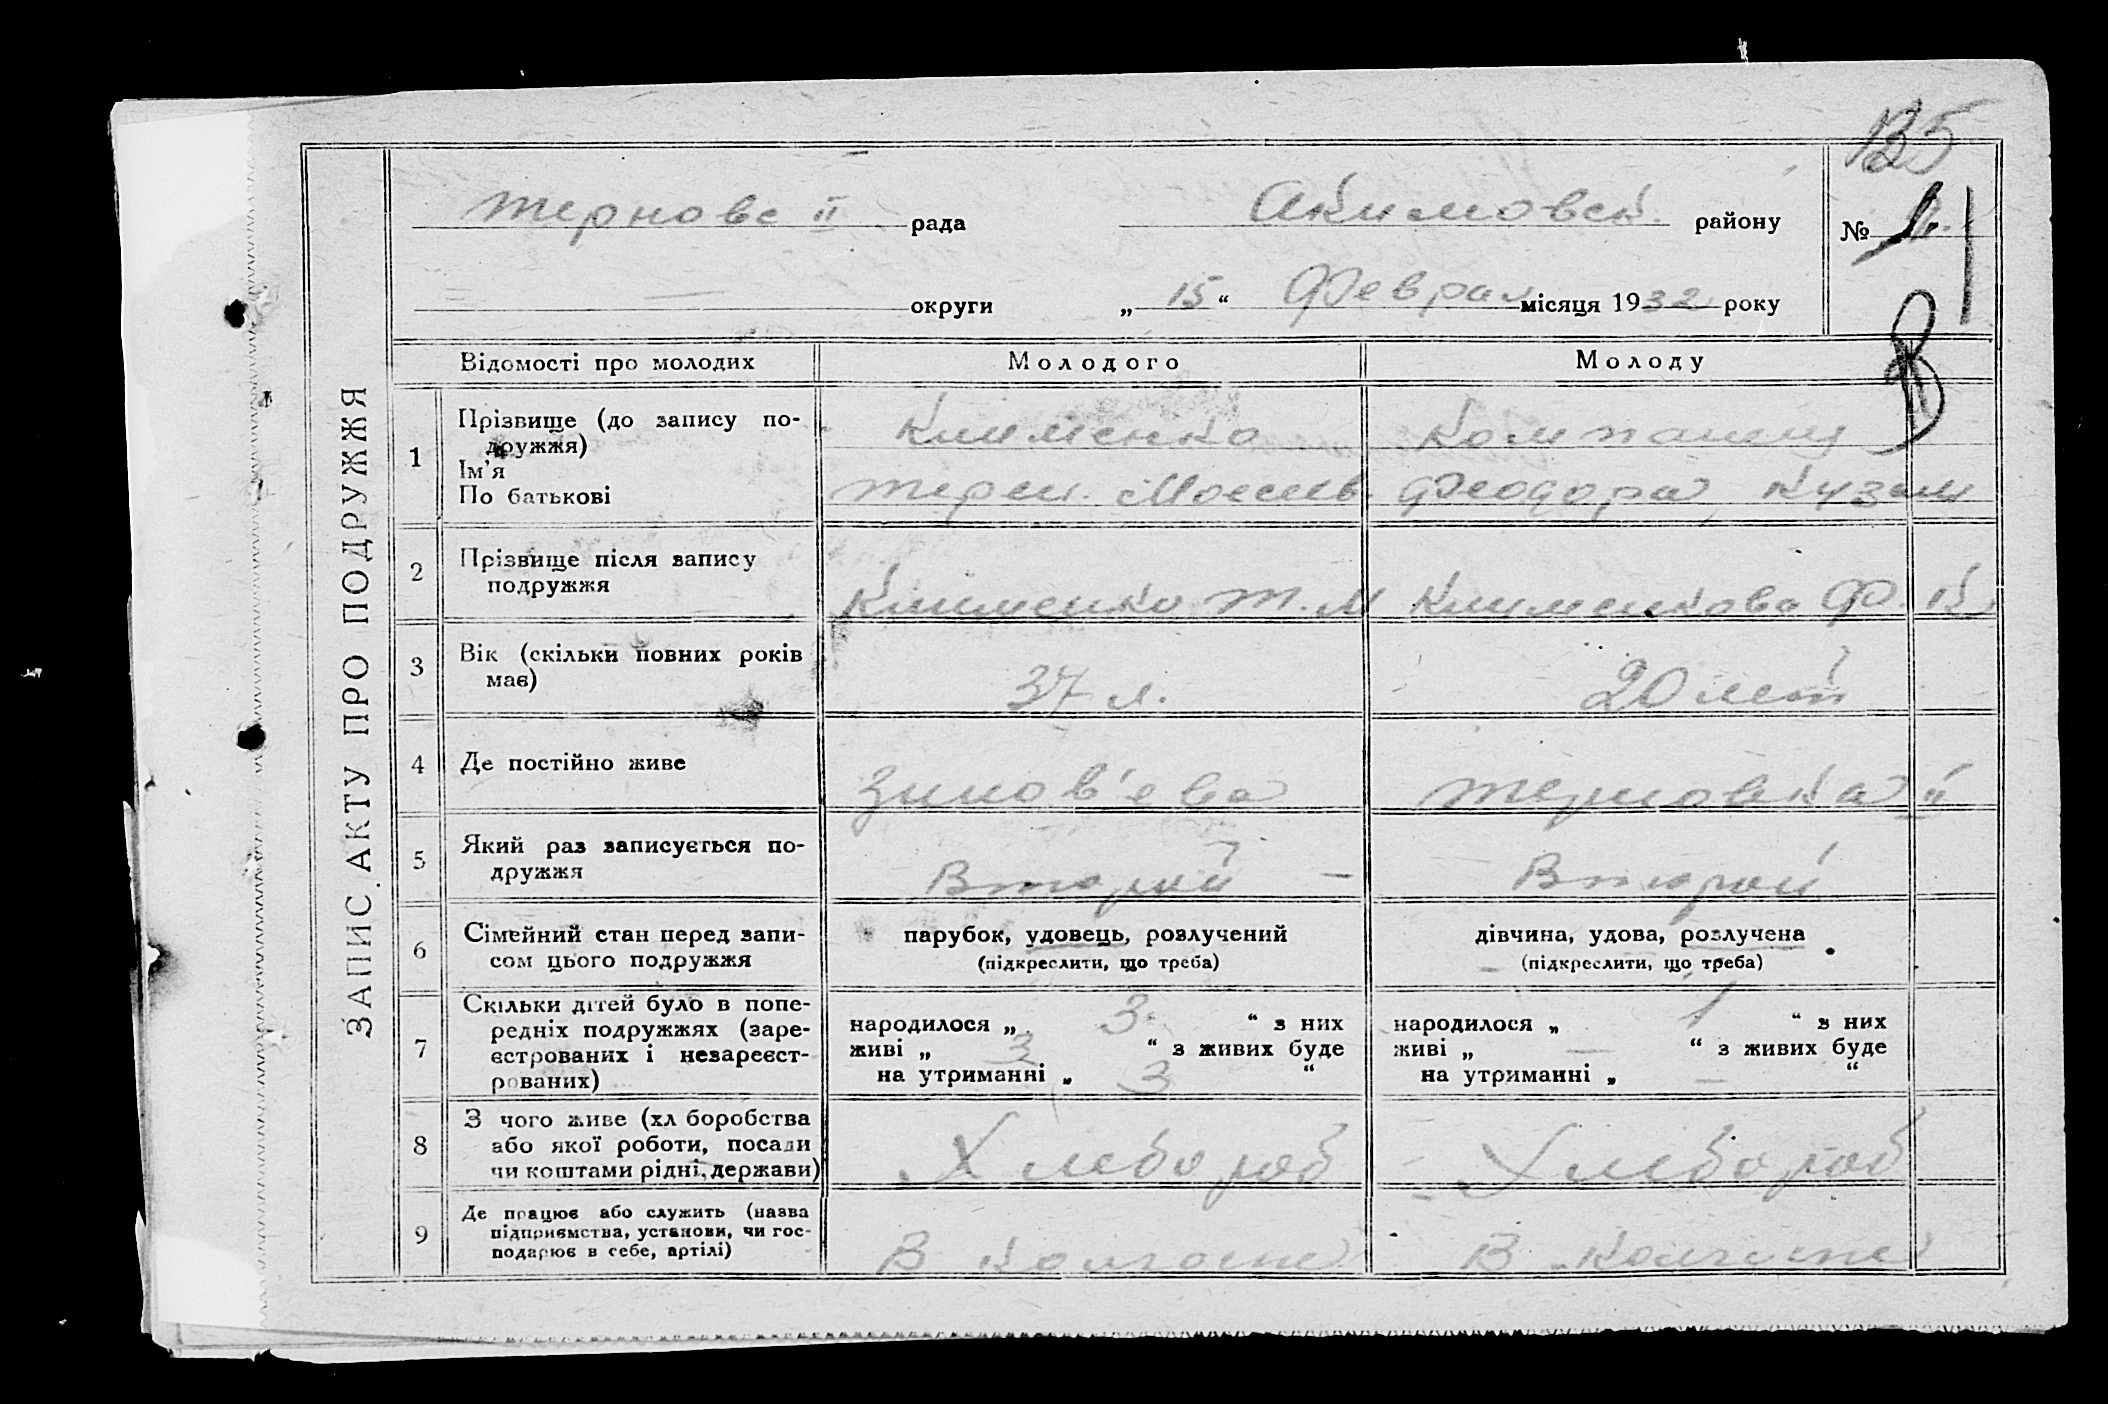 135
Тернове II рада Акимовск. району №
— округи „ 15 “ Феврал місяця 1932 року
ЗАПИС АКТУ ПРО ПОДРУЖЖЯ
Відомості про молодих Молодого Молоду
1 Прізвище (до запису по-
дружжя)
Клименко
Ім'я
По батькові
Моесеев. Феодора Кузьм
2 Прізвище після запису
подружжя
Клименко Т. М Клименкова Ф. К.
3 Вік (скільки повних років
має)
37 л. 20 лет
4 Де постійно живе
Зинов'ева Терновка II
5 Який раз записується по-
дружжя
Второй — Второй
6 Сімейний стан перед запи-
сом цього подружжя
парубок, удовець, розлучений дівчина, удова, розлучена
(підкреслити, що треба) (підкреслити, що треба)
7 Скільки дітей було в попе-
редніх подружжях (заре-
єстрованих і незареєст-
рованих)
народилося „ 3. “ з них народилося „ 1 “ з них
живі „ 3 “ з живих буде живі „ — “ з живих буде
на утриманні „ 3 “ на утриманні „ — “
8 З чого живе (хл боробства
або якої роботи, посади
чи коштами рідні, держави)
Хлебороб Хлебороб
9 Де працює або служить (назва
підприємства, установи, чи гос-
подарює в себе, артілі)
В колгоспе В колгоспе